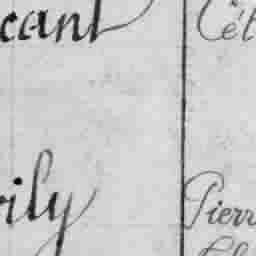 cant Cél
rily Pierr